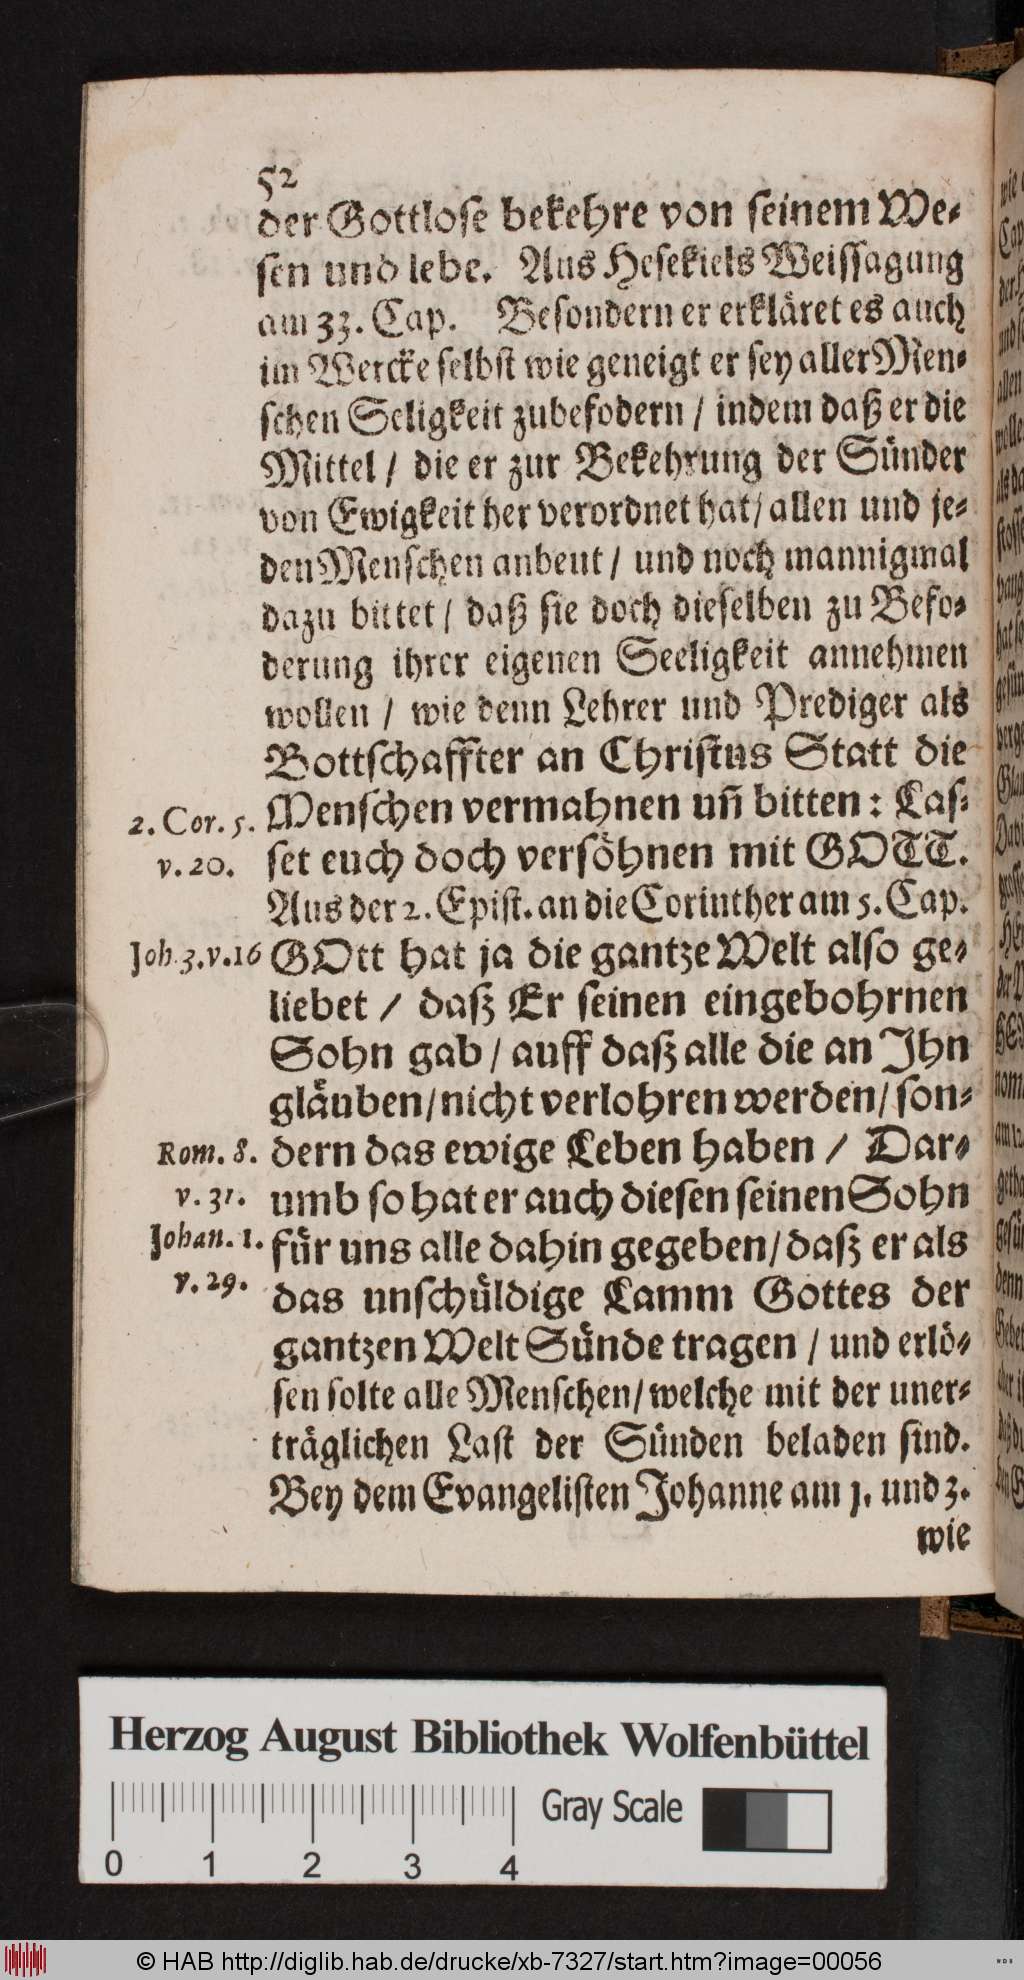 52
der Gottlose bekehre von seinem We-
sen und lebe. Aus Hesekiels Weissagung
am 33. Cap. Besondern er erkläret es auch
im Wercke selbst wie geneigt er sey aller Men-
schen Seligkeit zubefodern / indem daß er die
Mittel / die er zur Bekehrung der Sünder
von Ewigkeit her verordnet hat / allen und je-
den Menschen anbeut / und noch mannigmal
dazu bittet / daß sie doch dieselben zu Befo-
derung ihrer eigenen Seeligkeit annehmen
wollen / wie denn Lehrer und Prediger als
Bottschaffter an Christus Statt die
Menschen vermahnen uñ bitten: Las-
2. Cor. 5.
v. 20.
set euch doch versöhnen mit GOTT.
Aus der 2. Epist. an die Corinther am 5. Cap.
Joh 3. v. 16
GOtt hat ja die gantze Welt also ge-
liebet / daß Er seinen eingebohrnen
Sohn gab / auff daß alle die an Ihn
gläuben / nicht verlohren werden / son-
Rom. 8.
v. 31.
dern das ewige Leben haben / Dar-
umb so hat er auch diesen seinen Sohn
Johan. 1.
v. 29.
für uns alle dahin gegeben / daß er als
das unschüldige Lamm Gottes der
gantzen Welt Sünde tragen / und erlö-
sen solte alle Menschen / welche mit der uner-
träglichen Last der Sünden beladen sind.
Bey dem Evangelisten Johanne am 1. und 3.
wie
Herzog August Bibliothek Wolfenbüttel
Gray Scale
0 1 2 3 4
© HAB http://diglib.hab.de/drucke/xb-7327/start.htm?image=00056